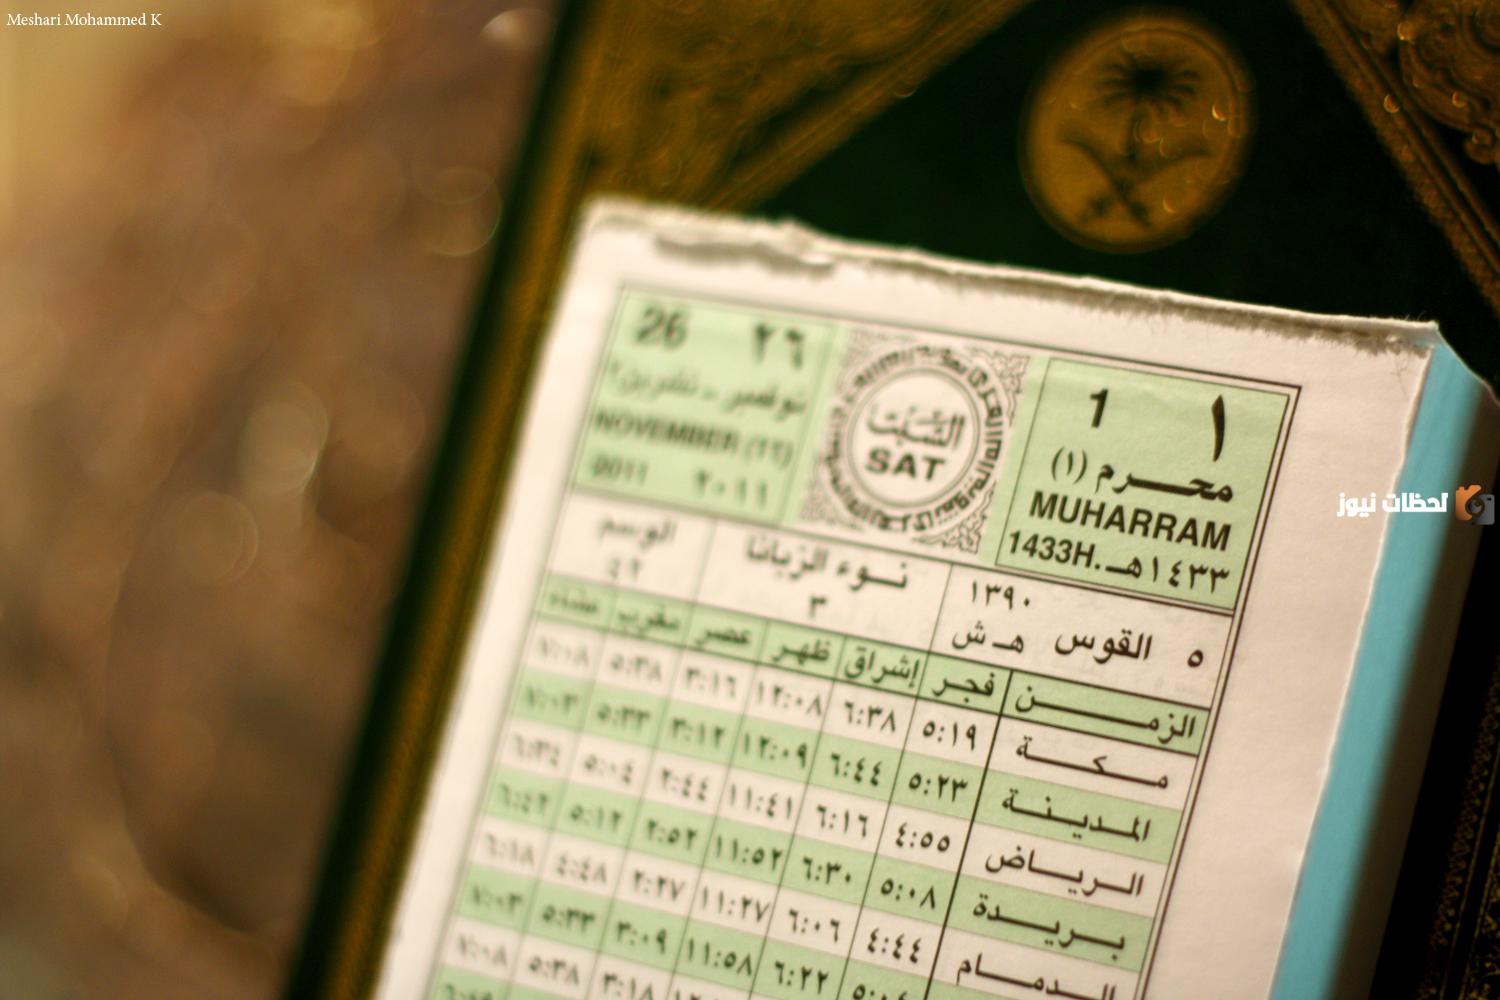 Meshari Mohammed K
١ 1
محرم (١)
MUHARRAM
١٤٣٣هـ 1433H.
السَّبْت
SAT
٢٦ 26
نوفمبر - تشرين٢
NOVEMBER (١١)
٢٠١١ 2011
لحظات نيوز
٥ القوس ١٣٩٠ هـ ش
نوء الزبانا
٣
الوسم
٤٢
الزمن فجر إشراق ظهر عصر مغرب عشاء
مكة ٥:١٩ ٦:٣٨ ١٢:٠٨ ٣:١٦ ٥:٣٨ ٧:٠٨
المدينة ٥:٢٣ ٦:٤٤ ١٢:٠٩ ٣:١٢ ٥:٣٣ ٧:٠٣
الرياض ٤:٥٥ ٦:١٦ ١١:٤١ ٢:٤٤ ٥:٠٤ ٦:٣٤
بريدة ٥:٠٨ ٦:٣٠ ١١:٥٢ ٢:٥٢ ٥:١٢ ٦:٤٢
الدمام ٤:٤٤ ٦:٠٦ ١١:٢٧ ٢:٢٧ ٤:٤٨ ٦:١٨
٦:٢٢ ١١:٥٨ ٣:٠٩ ٥:٣٣ ٧:٠٣
٣:١٨ ٥:٣٨ ٧:٠٨